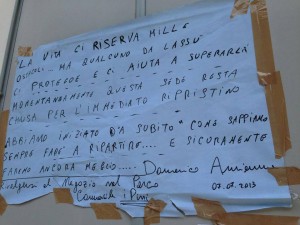 "LA VITA CI RISERVA MILLE
OSTACOLI... MA QUALCUNO DA LASSU'
CI PROTEGGE E CI AIUTA A SUPERARLI
MOMENTANEAMENTE QUESTA SEDE RESTA
CHIUSA PER L'IMMEDIATO RIPRISTINO
ABBIAMO INIZIATO DA SUBITO "COME SAPPIAMO
SEMPRE FARE" A RIPARTIRE... E SICURAMENTE
FAREMO ANCORA MEGLIO...
Domenico
Rivolgersi al Negozio nel Parco
2013